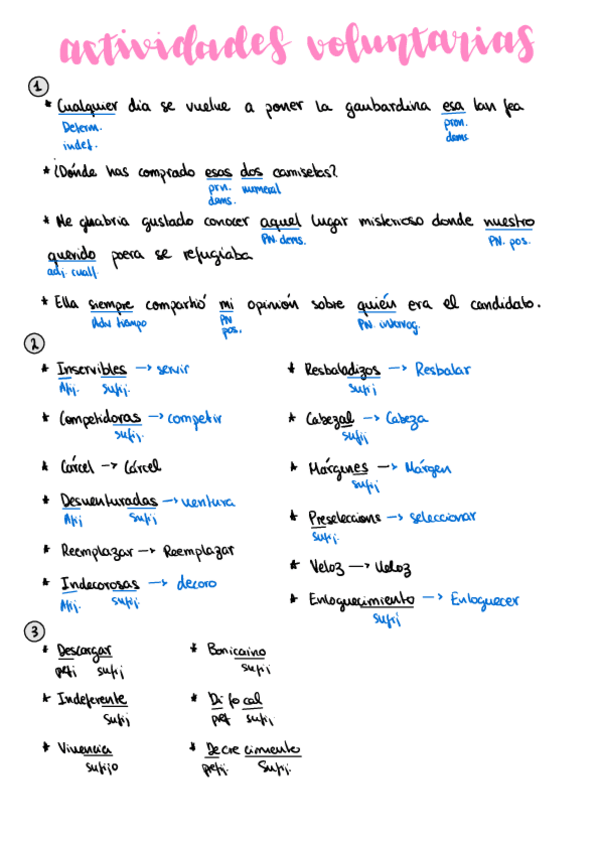 actividades voluntarias
1
* Cualquier dia se vuelve a poner la gaubardina esa tan fea
Determ. pron.
indef. dems
* ¿Dónde has comprado esas dos camisetas?
prn. numeral
dems.
* Me ghabria gustado conocer aquel lugar misterioso donde nuestro
PN. dems. PN. pos.
querido poera se refugiaba
adj. cualf.
* Ella siempre compartió mi opinión sobre quién era el candidato.
Adv tiempo PN PN. interrog.
pos.
2
* Inservibles → servir * Resbaladizos → Resbalar
Afij. Sufij. Sufij
* Competidoras → competir * Cabezal → Cabeza
sufij. sufij
* Cárcel → Cárcel * Márgenes → Márgen
sufij
* Desventuradas → ventura * Preseleccions → seleccionar
Afij Sufij Sufij.
* Reemplazar → Reemplazar * Veloz → Veloz
* Indecorosas → decoro * Enloquecimiento → Enloquecer
Afij. sufij. sufij
3
* Descargar * Bonicaino
pefi sufij sufij
* Indeferente * Di fo cal
Sufij pref sufij
* Vivencia * Decre cimiento
sufijo prefj. Sufij.